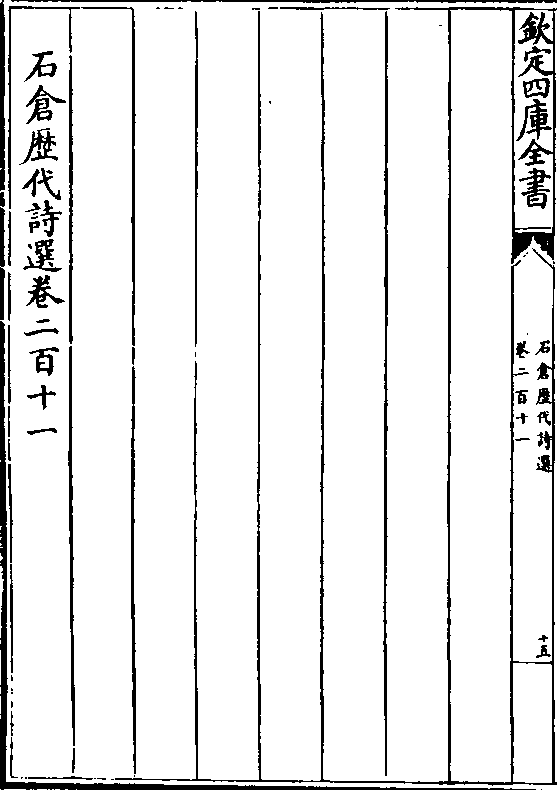 欽定四庫全書
石倉歷代詩選
卷二百十一
十五
石倉歷代詩選卷二百十一